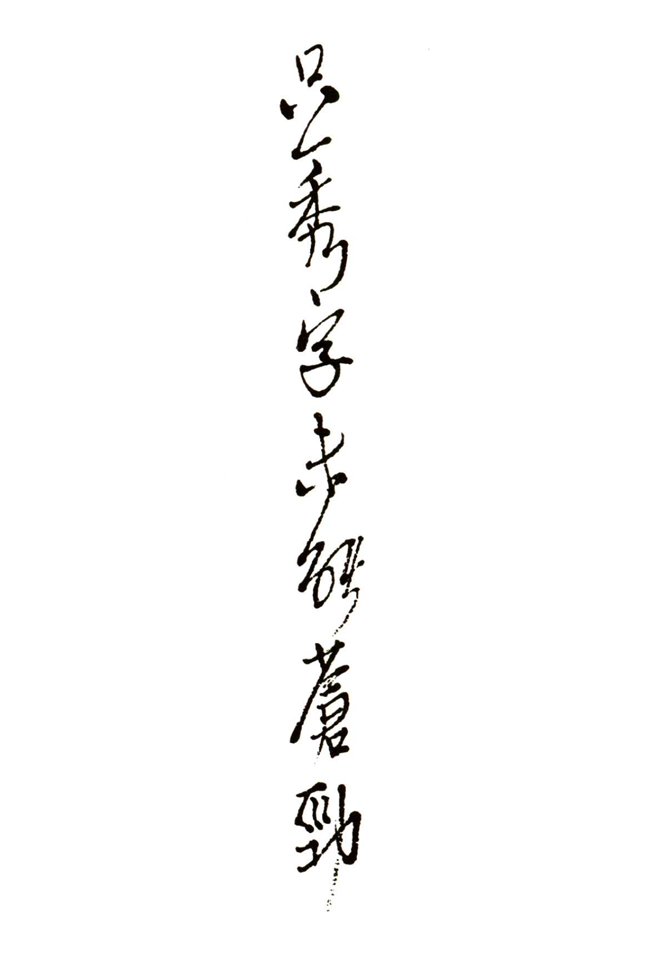 只一秀字未能蒼勁